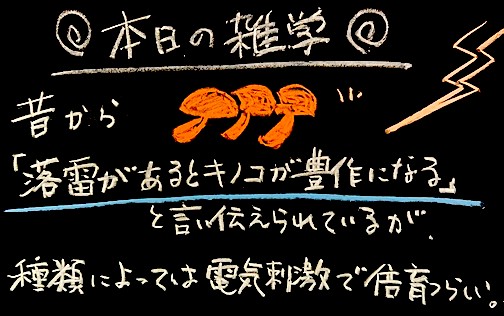 本日の雑学
昔から
「落雷があるとキノコが豊作になる」
と言い伝えられているが、
種類によっては電気刺激で倍育つらい。